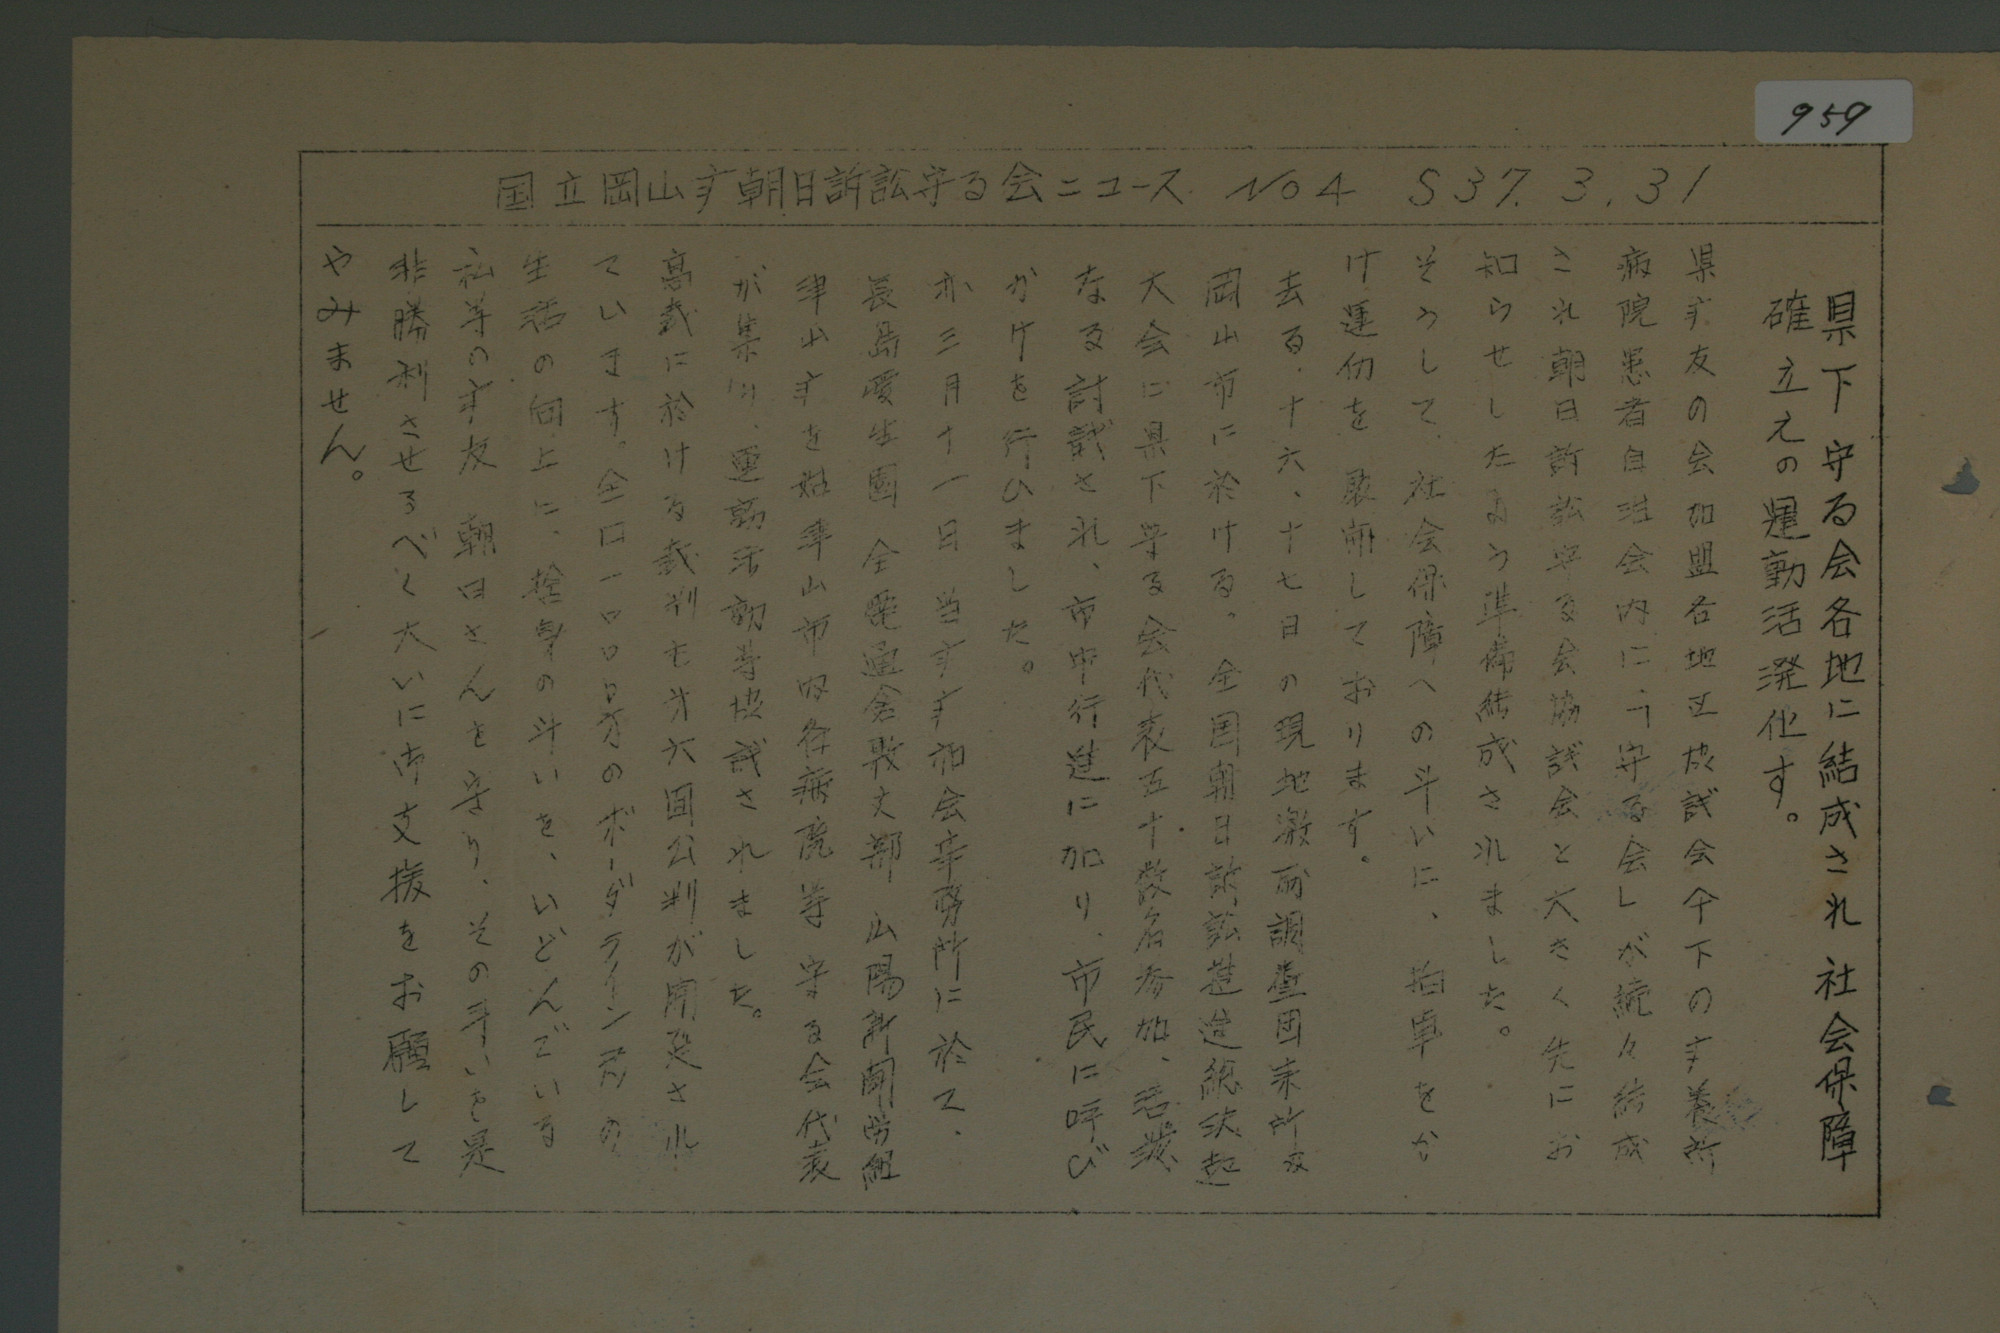 959
国立岡山すﾞ朝日訴訟守る会ニュース No4 S37.3.31
県下守る会各地に結成され 社会保障
確立えの運動活溌化す。
県す友の会加盟各地区協議会傘下のす養所
病院患者自治会内に「守る会」が続々結成
され朝日訴訟守る会協議会と大きく先にお
知らせしたよう準備結成されました。
そうして、社会保障への斗いに、拍車をか
け運仂を展開しております。
去る、十六、十七日の現地激励調査団来所及
岡山市に於ける。全国朝日訴訟進総決起
大会に県下守る会代表五十数名参加、活溌
なる討議され、市中行進に加り、市民に呼び
かけを行ひました。
亦三月十一日 当すす和会事務所に於て、
長島愛生園 全電通倉敷支部 山陽新聞労組
津山すを始津山市内各病院等 守る会代表
が集り、運動活動等協議されました。
高裁に於ける裁判も才六回公判が開廷され
ています。全口一口口口号才のボーダライン層の
生活の向上に、捨身の斗いを、いどんでいる
私等のす友 朝日さんを守り、その斗いを是
非勝利させるべく大いに御支援をお願して
やみません。